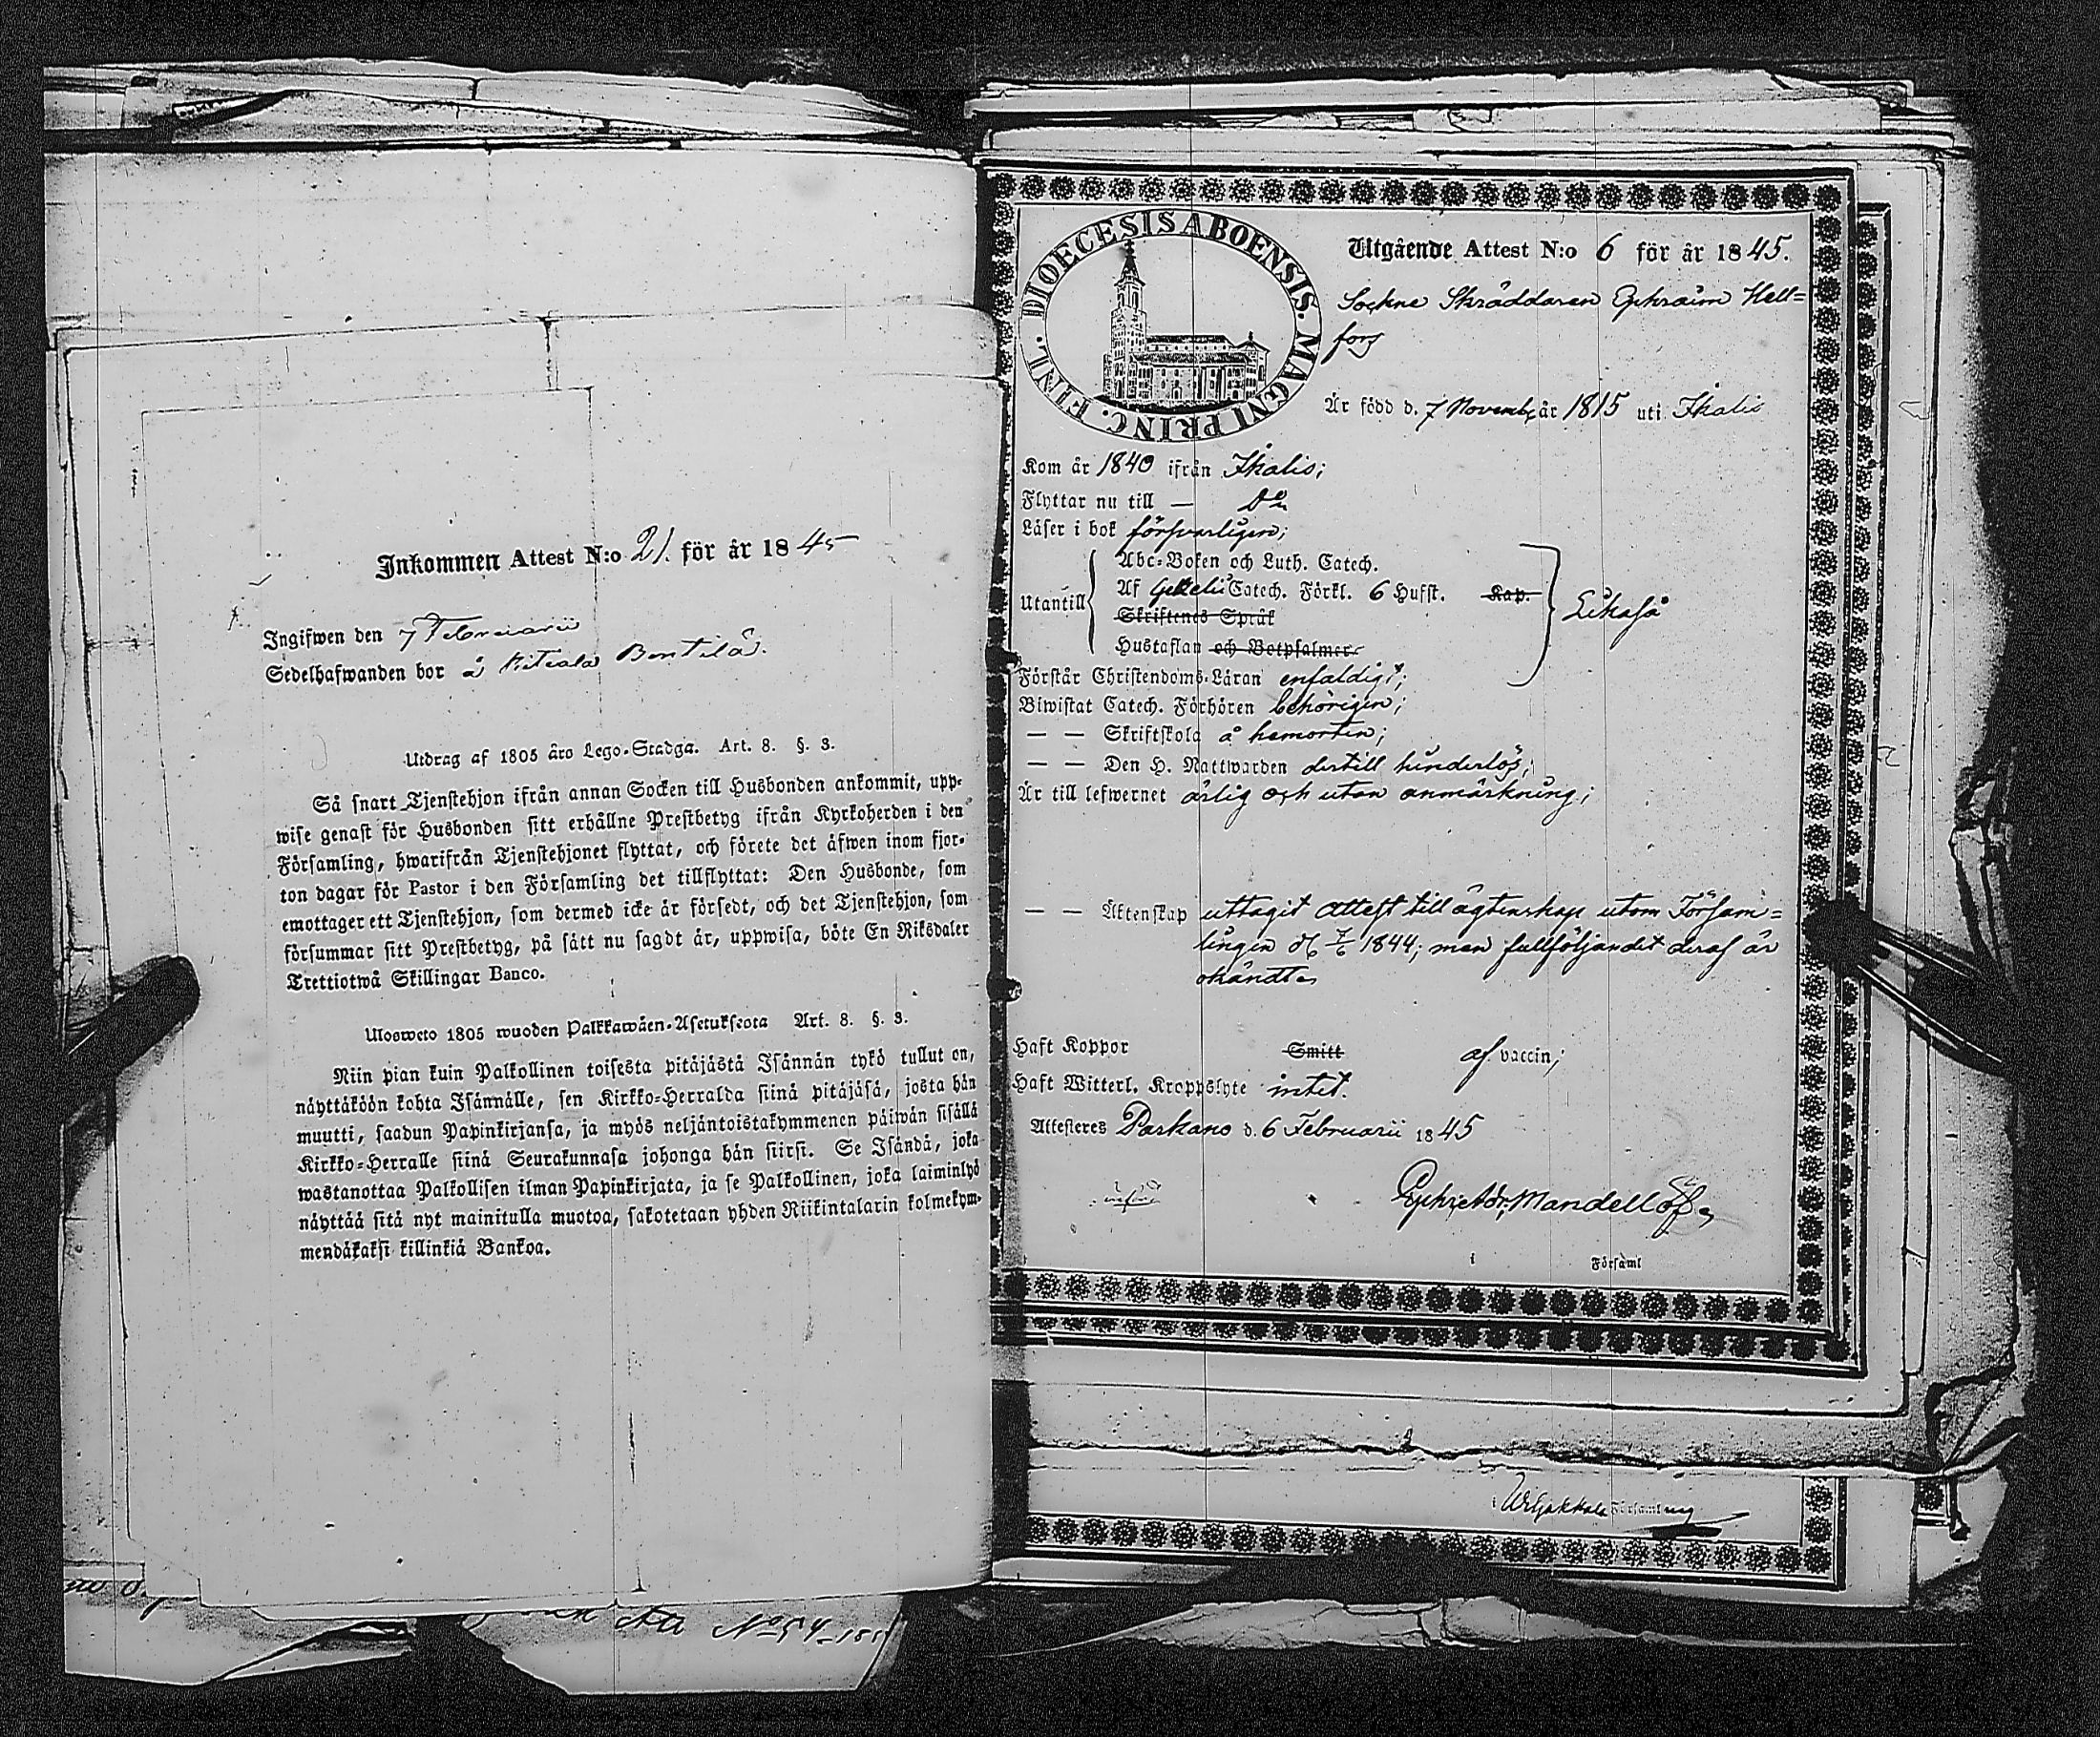 Inkommen Attest N:o 21. för år 1845
Ingifwen den 7 Februarii
Sedelhafwanden bor å Kitiala Bentilä.
Utdrag af 1805 års Lego-Stadga. Art. 8. §. 3.
Så snart Tjenstehjon ifrån annan Socken till Husbonden ankommit, upp-
wise genast för Husbonden sitt erhållne Prestbetyg ifrån Kyrkoherden i den
Församling, hwarifrån Tjenstehjonet flyttat, och förete det äfwen inom fjor-
ton dagar för Pastor i den Församling det tillflyttat: Den Husbonde, som
emottager ett Tjenstehjon, som dermed icke är försedt, och det Tjenstehjon, som
försummar sitt Prestbetyg, på sätt nu sagdt är, uppwisa, böte En Riksdaler
Trettiotwå Skillingar Banco.
Ulosweto 1805 wuoden Palkkawäen-Asetuksesta Art. 8. §. 3.
Niin pian kuin Palkollinen toisesta pitäjästä Isännän tykö tullut on,
näyttäköön kohta Isännälle, sen Kirkko-Herralda siinä pitäjäsä, josta hän
muutti, saadun Papinkirjansa, ja myös neljäntoistakymmenen päiwän sisällä
Kirkko-Herralle siinä Seurakunnasa johonga hän siirsi. Se Isändä, joka
wastanottaa Palkollisen ilman Papinkirjata, ja se Palkollinen, joka laiminlyö
näyttää sitä nyt mainitulla muotoa, sakotetaan yhden Riikintalarin kolmekym-
mendäkaksi killinkiä Bankoa.
Att N:o 54
DIOECESIS ABOENSIS. MAGNI PRINC. FINL.
Utgående Attest N:o 6 för år 1845.
Sockne Skräddaren Ephraim Hell=
fors
Är född d. 7 Novemb. år 1815 uti Ikalis
Kom år 1840 ifrån Ikalis;
Flyttar nu till — Do
Läser i bok försvarligen;
Abc-Boken och Luth. Catech.
Utantill Af Gezelii Catech. Förkl. 6 Hufst. Kap. Likaså
Skriftenes Språk
Hustaflan och Botpsalmer
Förstår Christendoms-Läran enfaldigt;
Biwistat Catech. Förhören behörigen;
— — Skriftskola å hemorten;
— — Den H. Nattwarden dertill hinderlös;
Är till lefwernet ärlig och utan anmärkning;
— — Äktenskap uttagit attest till ägtenskap utom Försam=
lingen d. 7/6 1844; men fullföljandet deraf är
okändt.
Haft Koppor Smitt af vaccin;
Haft Witterl. Kroppslyte intet.
Attesteres Parkano d. 6 Februarii 1845
Mandellöf.
i Församl
i Urjakkala Församling